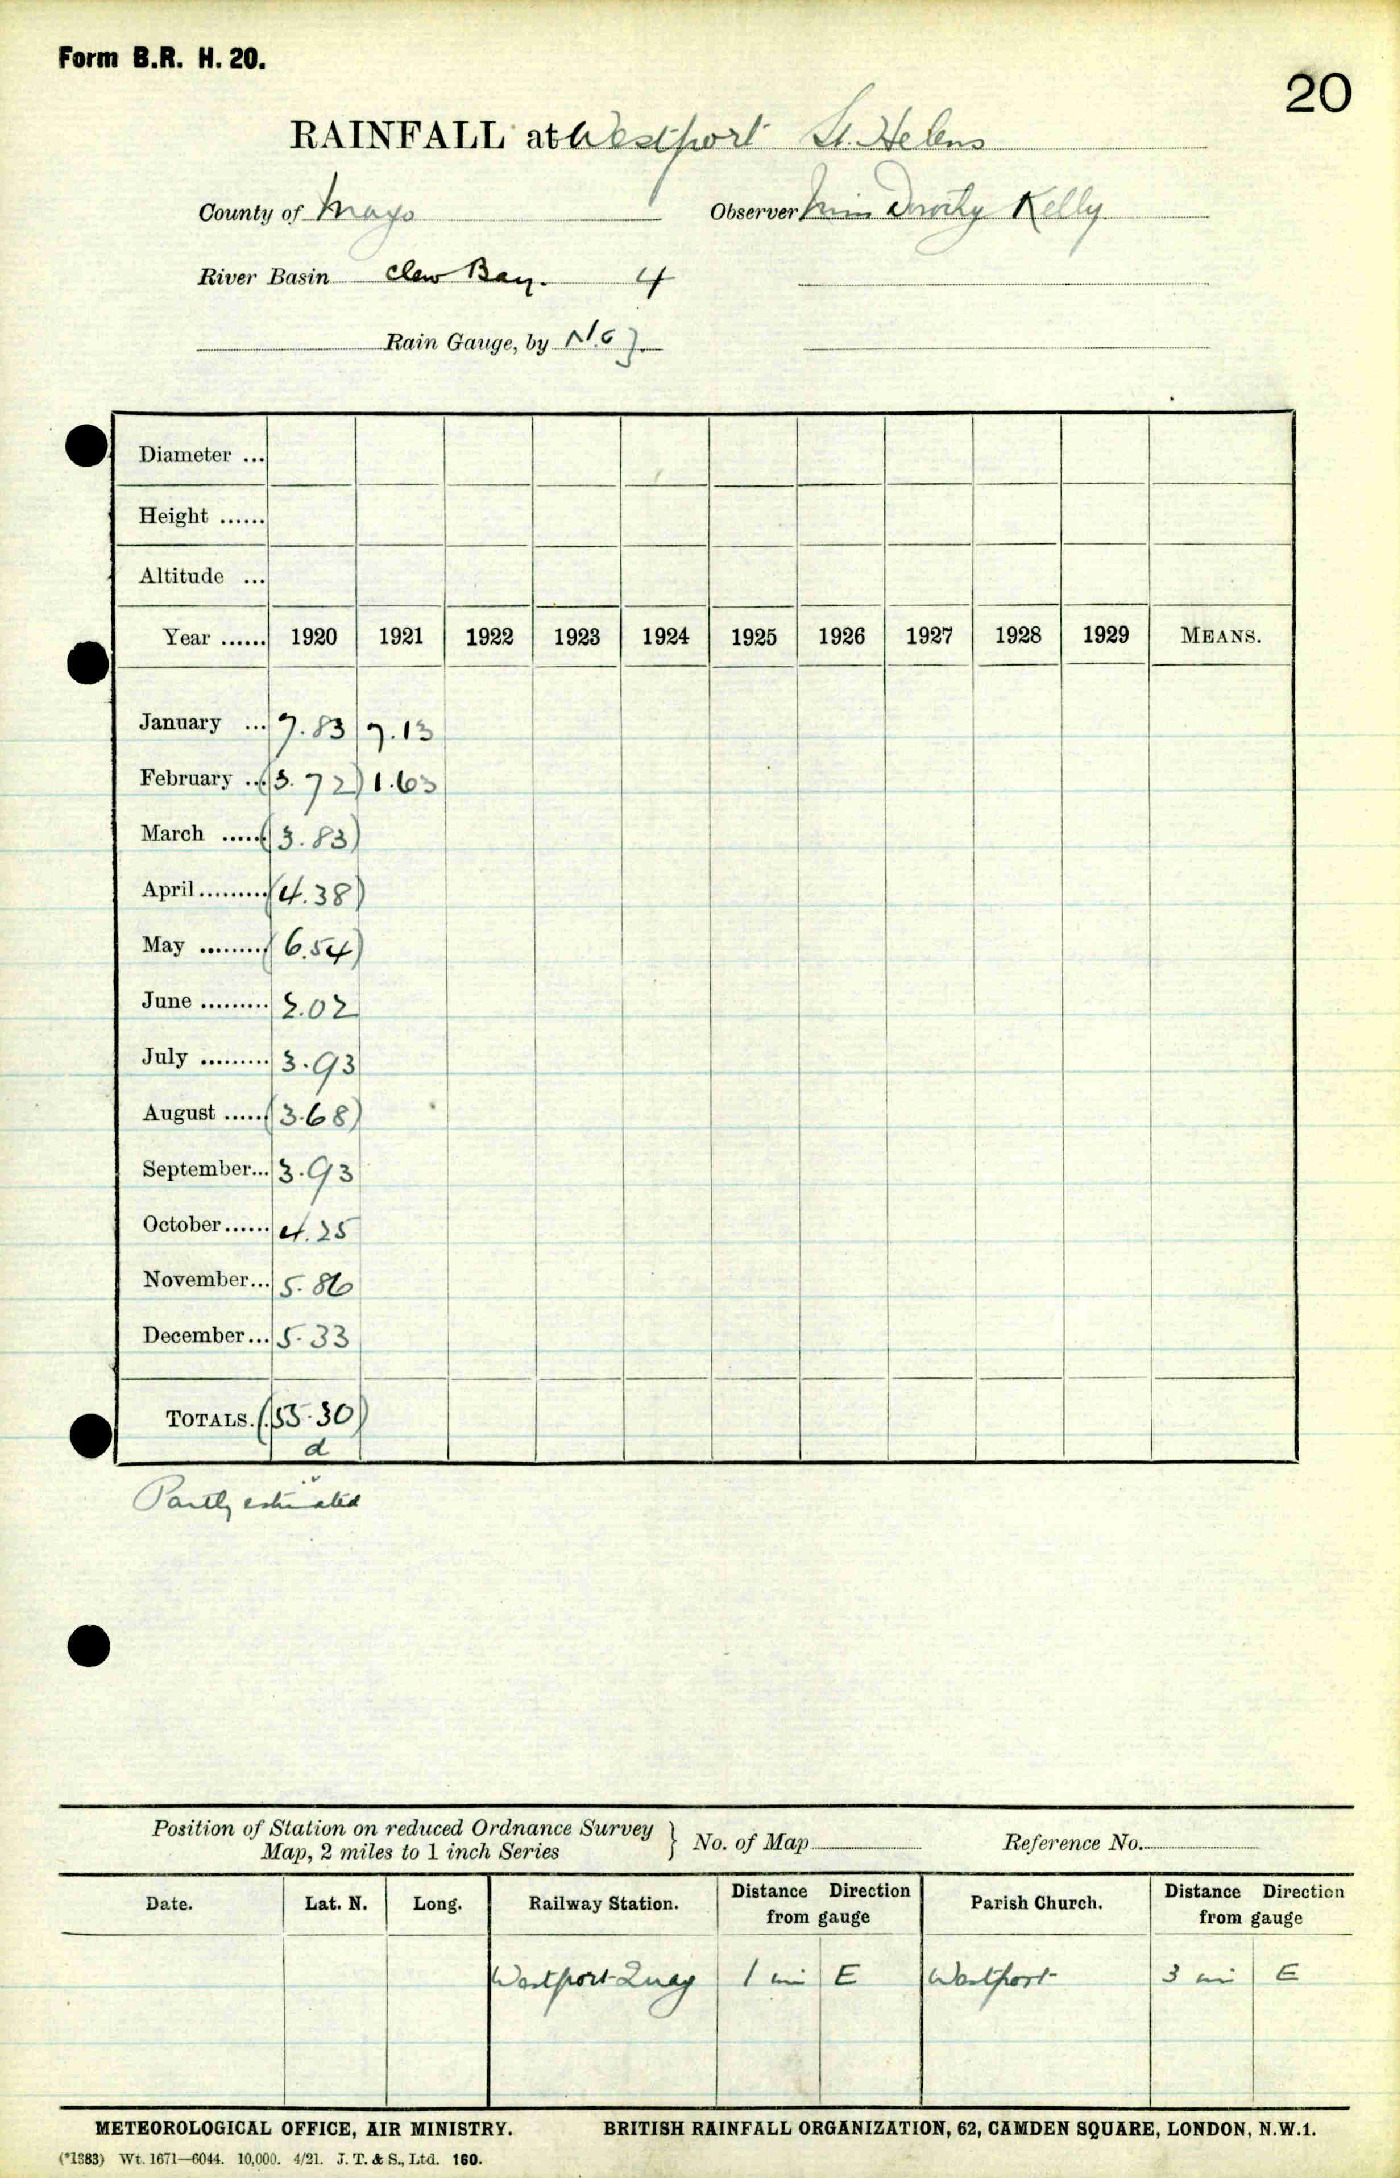 Form B.R. H. 20.
20
RAINFALL at Westport St. Helens
County of Mayo Observer Miss Dorothy Kelly
River Basin Clew Bay. 4
Rain Gauge, by N.G.J.
Diameter ...
Height ......
Altitude ...
Year ...... 1920 1921 1922 1923 1924 1925 1926 1927 1928 1929 MEANS.
January ... 7.83 7.13
February ... (3.72) 1.63
March ...... (3.83)
April ......... (4.38)
May ......... (6.54)
June ......... 2.02
July ......... 3.93
August ...... (3.68)
September... 3.93
October ...... 4.25
November... 5.86
December... 5.33
TOTALS. (55.30)
d
Partly estimated
Position of Station on reduced Ordnance Survey
Map, 2 miles to 1 inch Series } No. of Map Reference No.
Date. Lat. N. Long. Railway Station. Distance Direction from gauge Parish Church. Distance Direction from gauge
Westport Quay 1 mi E Westport 3 mi E
METEOROLOGICAL OFFICE, AIR MINISTRY. BRITISH RAINFALL ORGANIZATION, 62, CAMDEN SQUARE, LONDON, N.W.1.
(*1383) Wt. 1671—6044. 10,000. 4/21. J. T. & S., Ltd. 160.